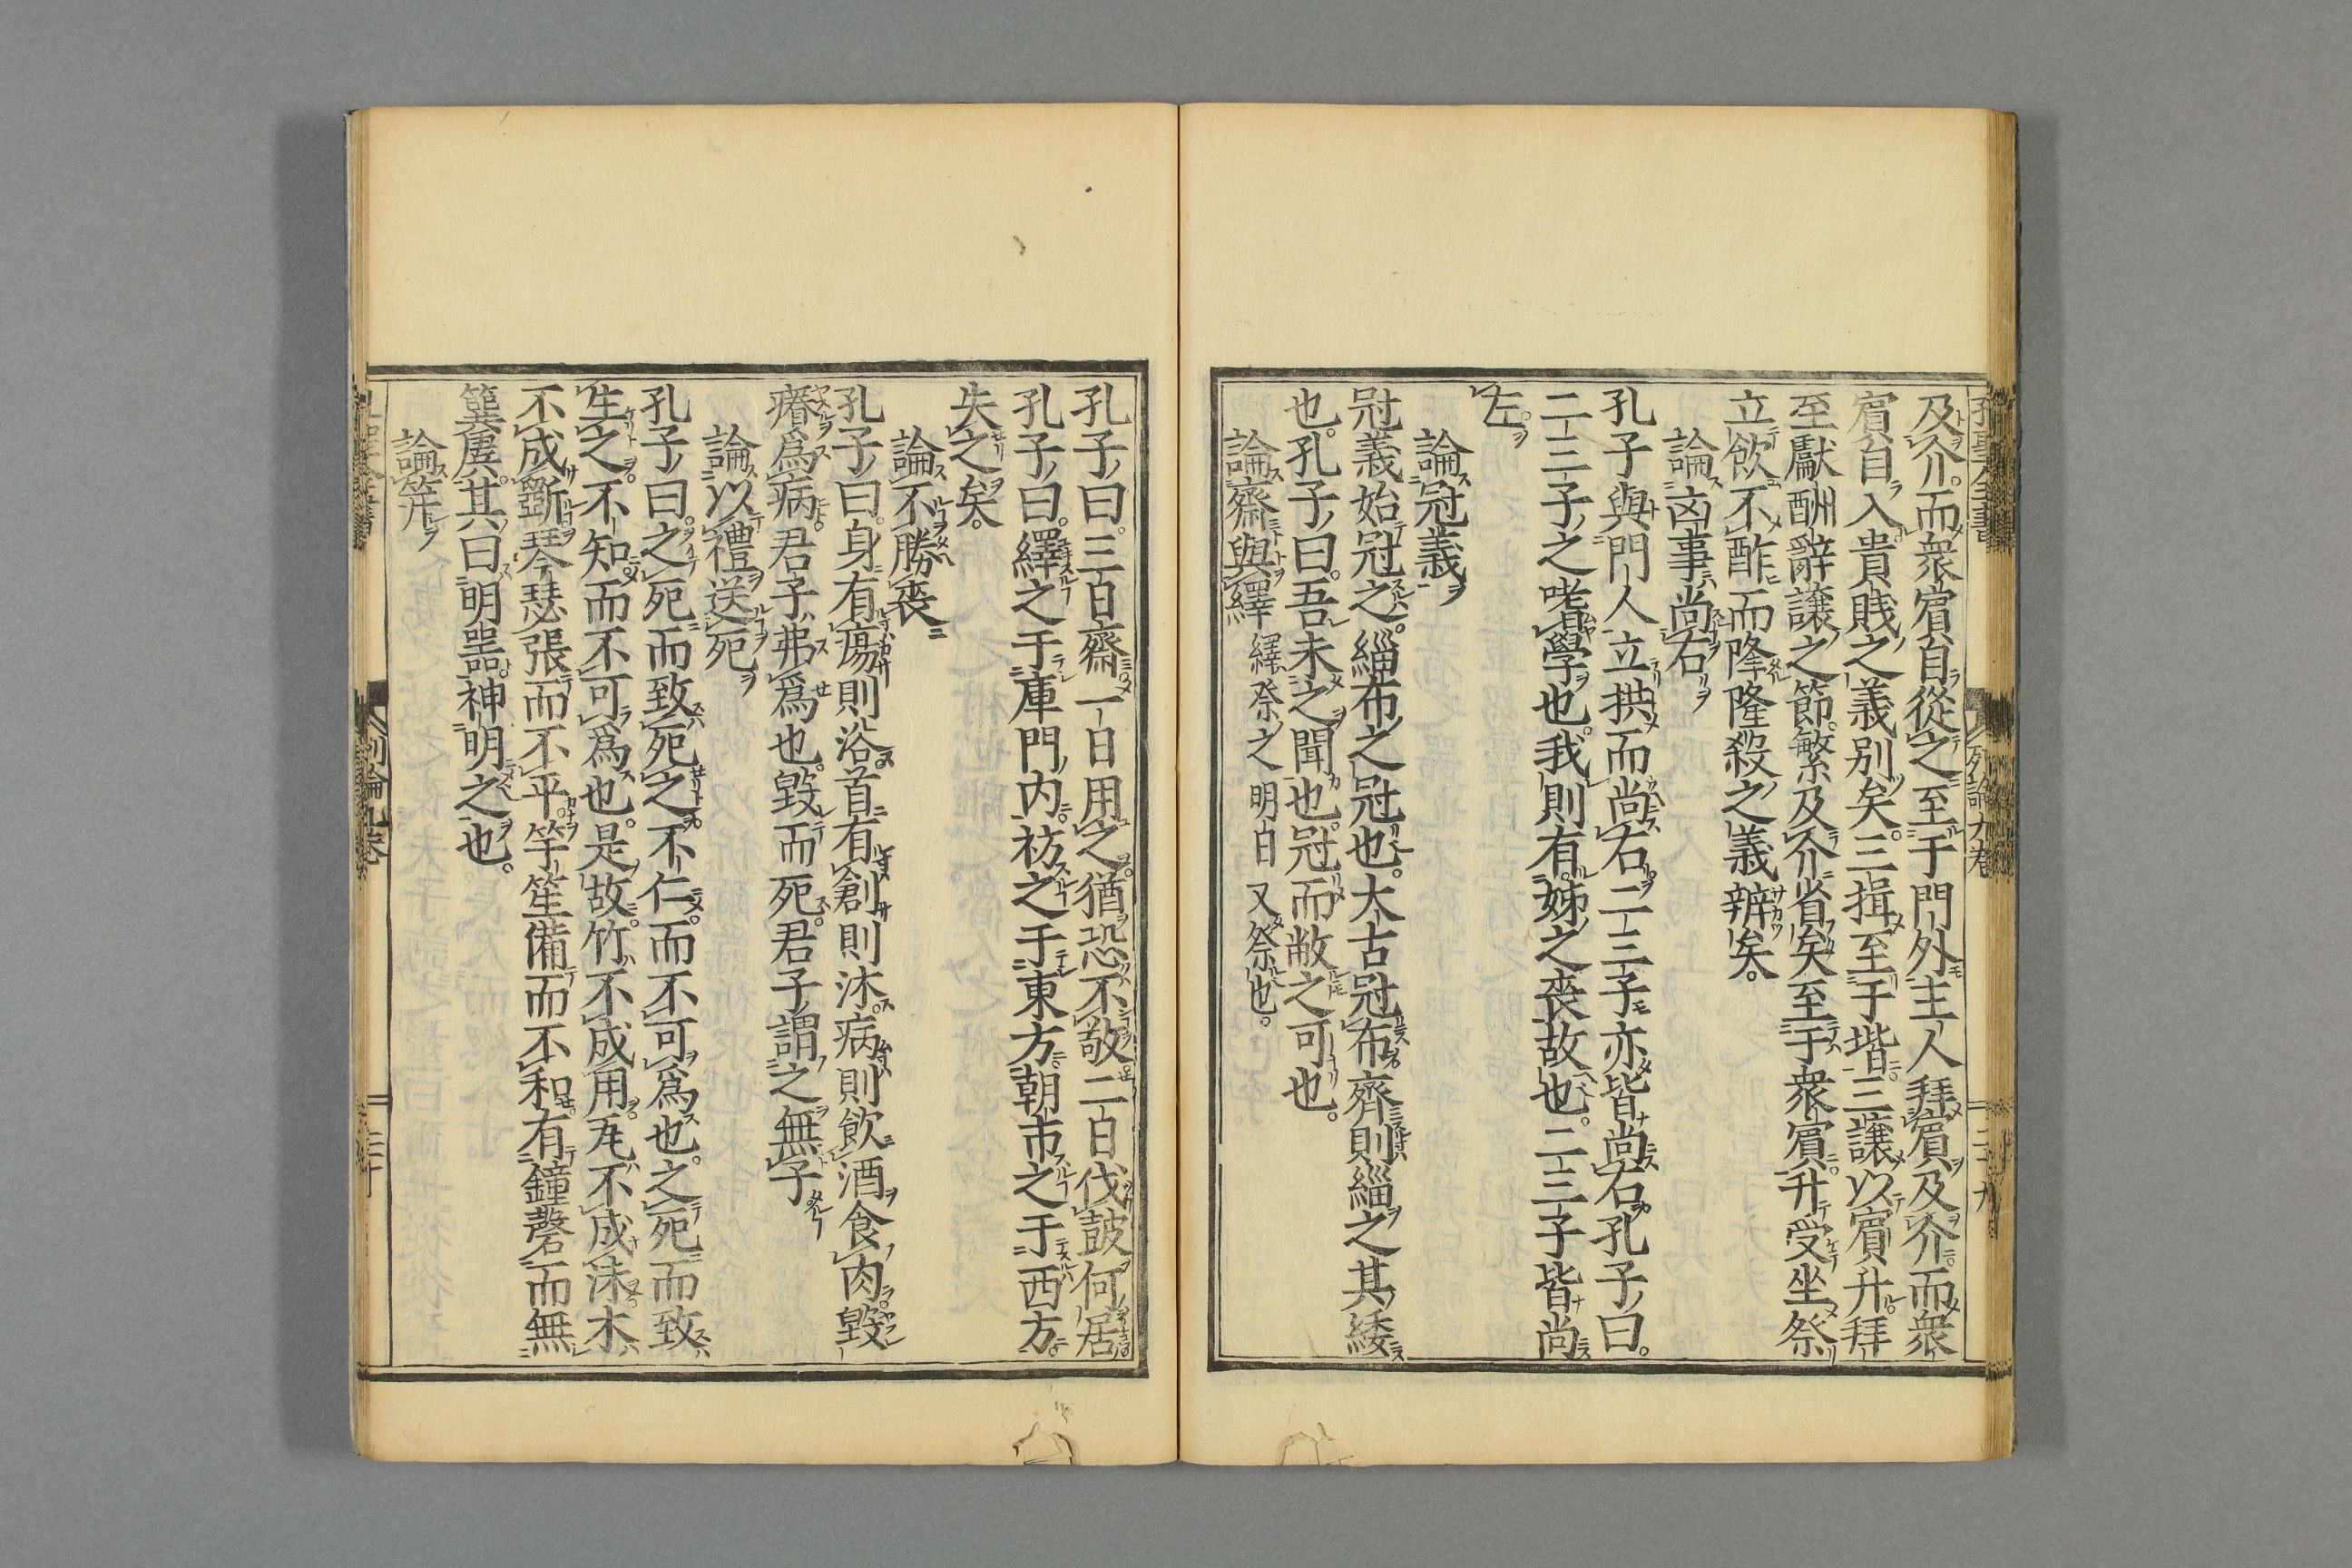 孔聖全書　列論九卷　二十九
及介。而衆賔自從之至于門外主人拜賔及介。而衆
賔自入貴賤之義別矣。三揖至于堦三讓以賔升拜
至獻酬辭讓之節繁及介省矣至于衆賔升受坐祭
立飲不酢而降隆殺之義辨矣。
論凶事尚右
孔子與門人立拱而尚右二三子亦皆尚右孔子曰。
二三子之嗜學也我則有姊之喪故也。二三子皆尚
左。
論冠義
冠義始冠之緇布之冠也。大古冠布齊則緇之其緌
也。孔子曰。吾未之聞也。冠而敝之可也。
論齋與繹　繹祭之明白又祭也。
孔子曰。三日齋一日用之猶恐不敬二日伐鼓何居
孔子曰。繹之于庫門内祊之于東方朝市之于西方
失之矣。
論不勝喪
孔子曰身有瘍則浴首有創則沐病則飲酒食肉毀
瘠爲病君子弗爲也毀而死君子謂之無子
論以禮送死
孔子曰。之死而致死之不仁。而不可爲也。之死而致
生之。不知而不可爲也是故竹不成用。瓦不成沬木
不成斵琴瑟張而不平竽笙備而不和有鐘磬而無
簨虡其曰明噐神明之也。
論笄
列論九卷　三十